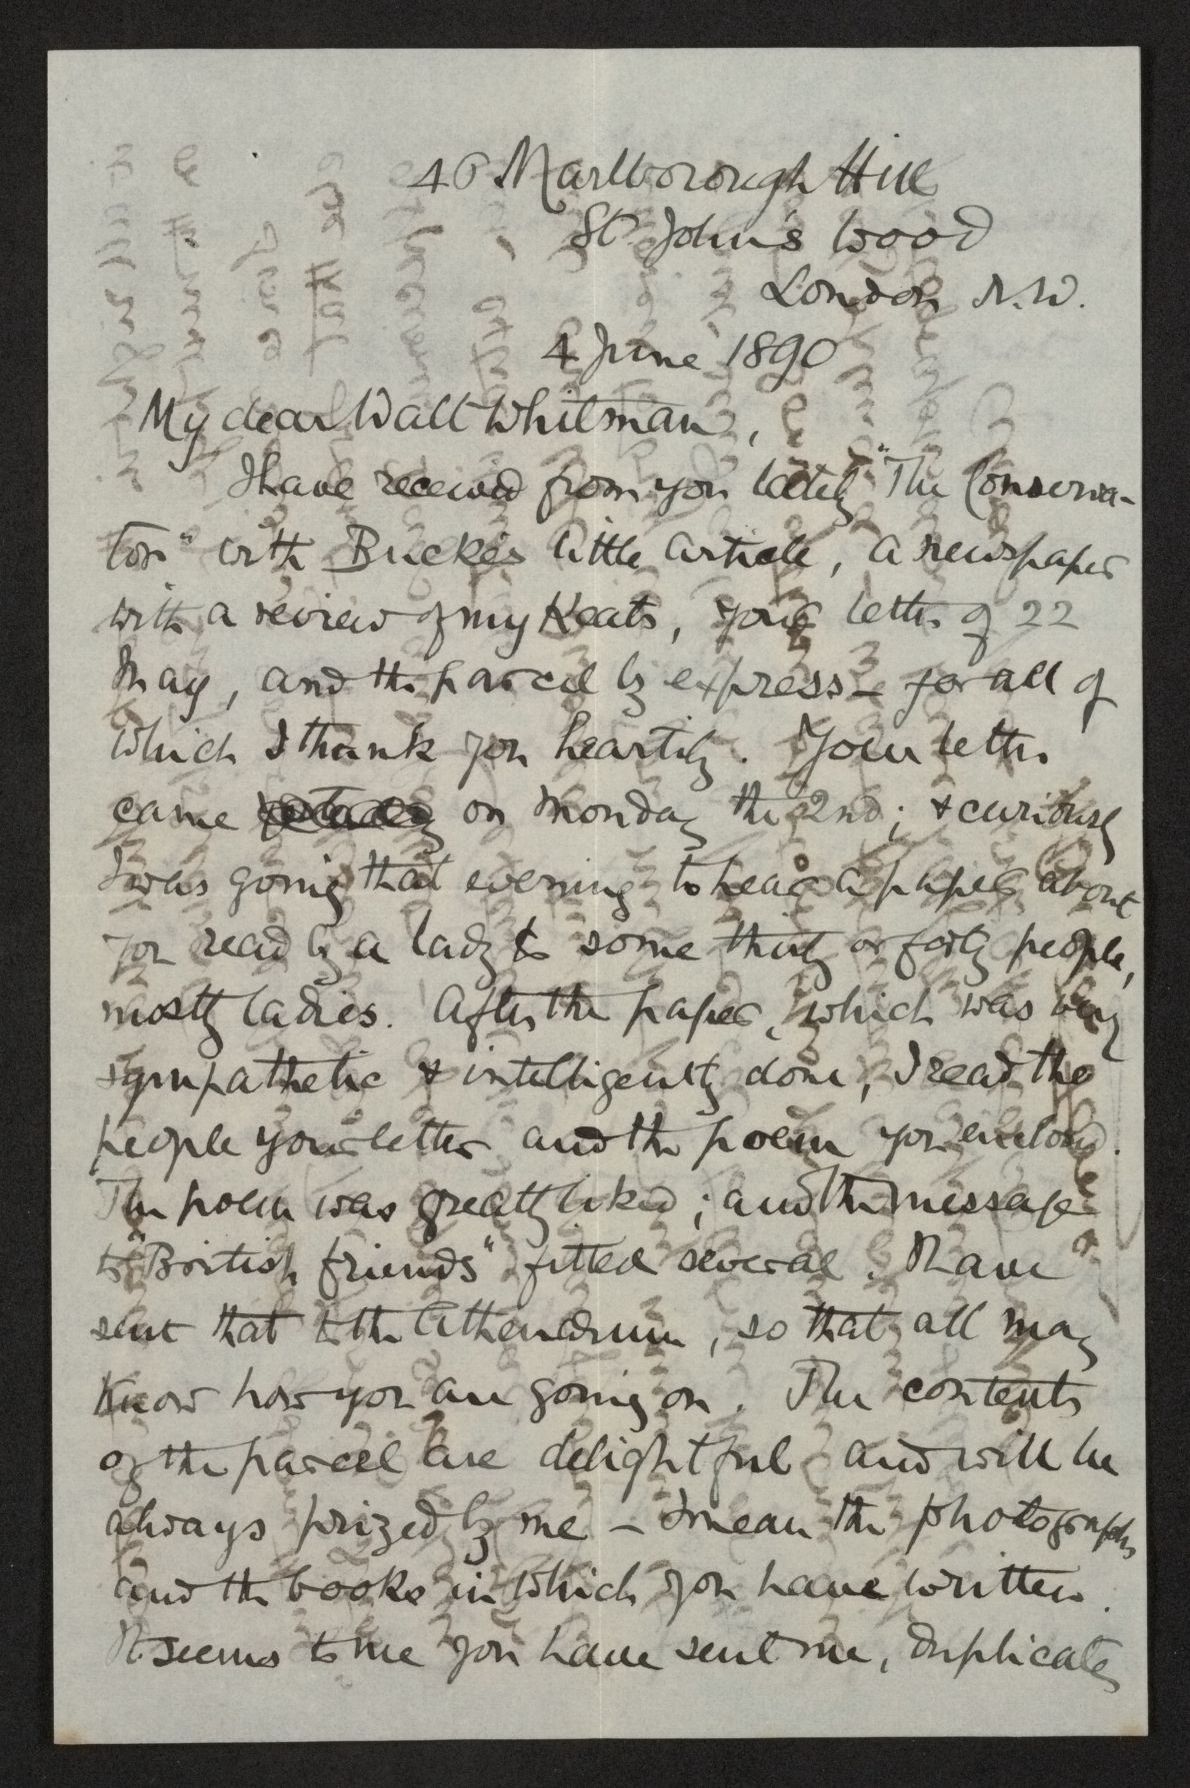 46 Marlborough Hill
St John's Wood
London N.W.
4 June 1890
My dear Walt Whitman,
I have received from you lately "The Conserva-
tor" with Bucke's little article, a newspaper
with a review of my Keats, your letter of 22
May, and the parcel by express — for all of
which I thank you heartily. Your letter
came on Monday the 2nd; & curiously
I was going that evening to hear a paper about
you read by a lady to some thirty or forty people,
mostly ladies. After the paper, which was very
sympathetic & intelligently done, I read the
people your letter and the poem you enclosed.
The poem was greatly liked; and the message
to "British friends" fitted several. I have
sent that to the Athenæum, so that all may
know how you are going on. The contents
of the parcel are delightful and will be
always prized by me — I mean the photographs
and the books in which you have written.
It seems to me you have sent me, duplicates